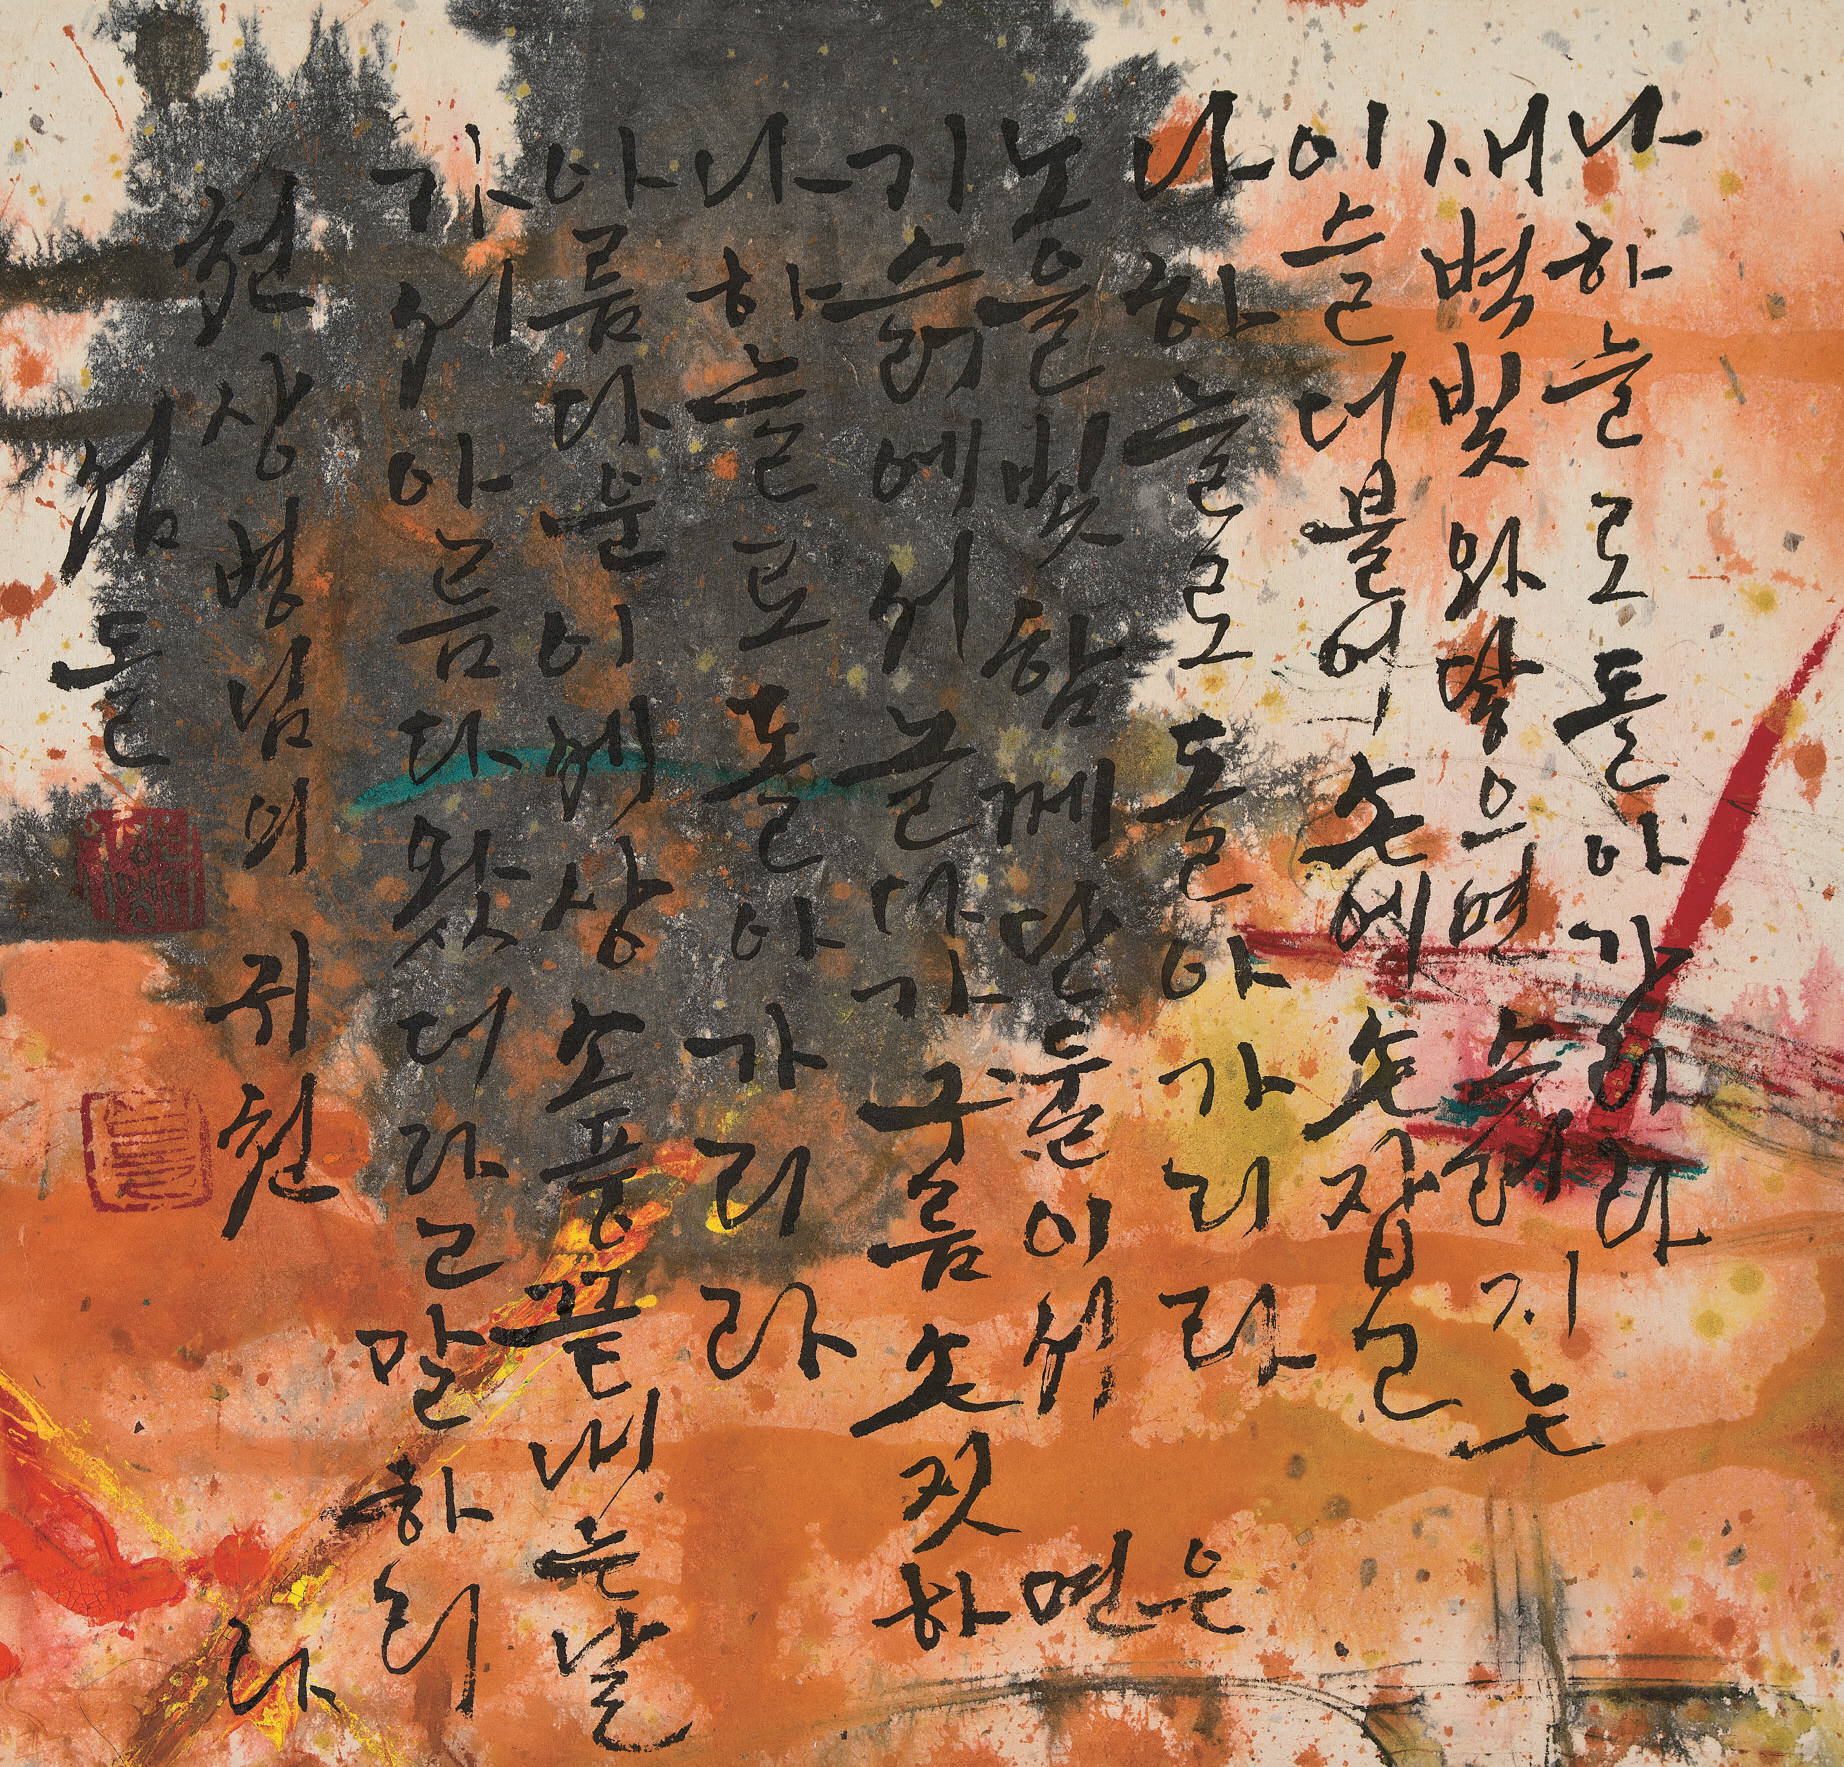 나 하늘로 돌아가리라
새벽빛 와 닿으면 스러지는
이슬 더불어 손에 손 잡고
나 하늘로 돌아가리라
노을빛 함께 단 둘이서
기슭에서 놀다가 구름 손짓하면은
나 하늘로 돌아가리라
아름다운 이 세상 소풍 끝내는 날
가서 아름다웠더라고 말하리라
천상병님의 귀천
섬돌